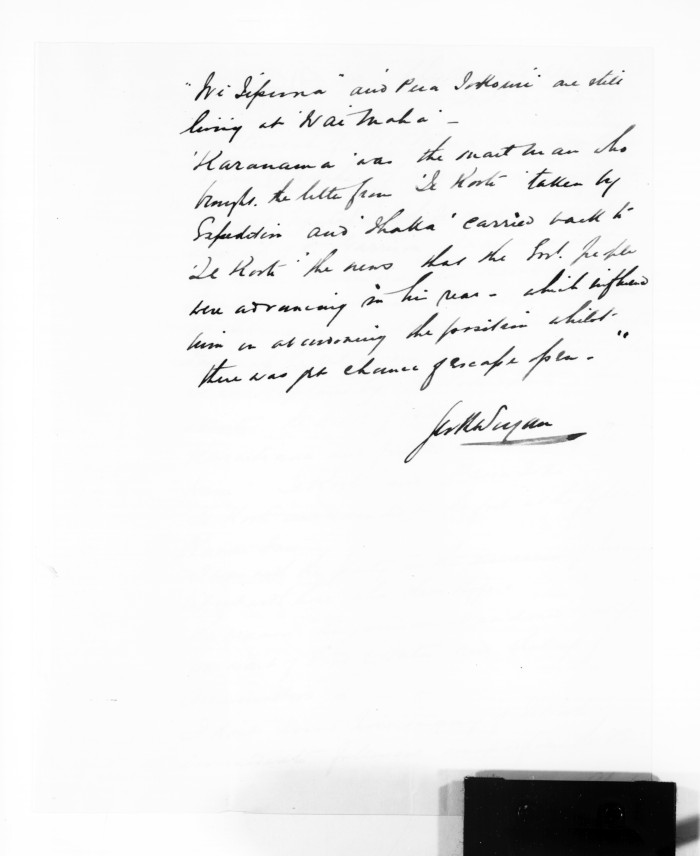 "Wi Tipuna" and Pera are still
living at 'Wai Maha' -
'Karanama' was the smart man who
brought the letter from 'Te Kooti' taken by
Expedition and 'Ihaka' carried back to
'Te Kooti' the news that the Govt. people
were advancing in his rear - which influenced
him in abandoning the position whilst
there was yet chance of escape open. "